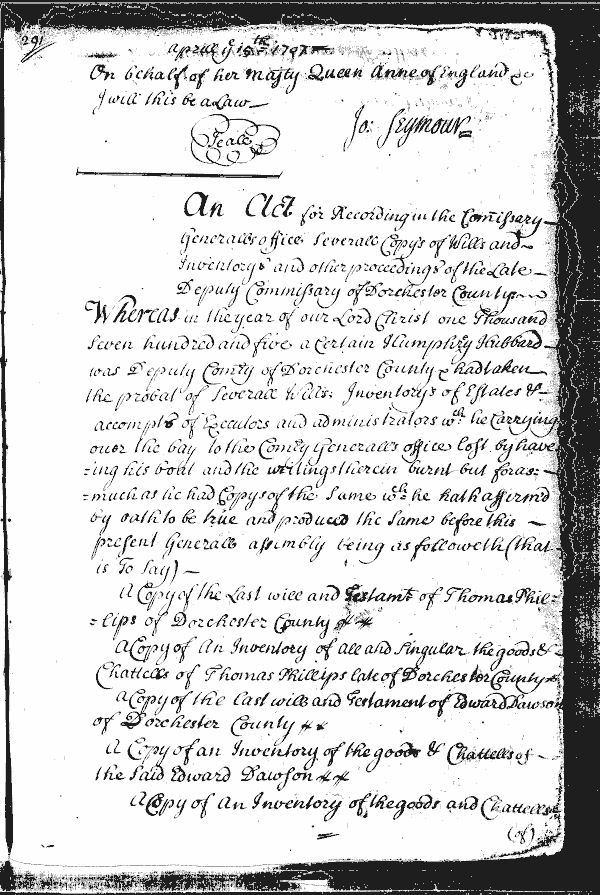 291
Aprall ye 15th 1707
On behalf of her Majty Queen Anne of England &c
I will this be a Law
Jo: Seymour
Seale
An Act for Recording in the Comissary
Generalls office Severall Copys of Wills and
Inventorys and other proceedings of the Late
Deputy Commissary of Dorchester County
Whereas in the year of our Lord Christ one Thousand
Seven hundred and five a Certain Humphry Hubbard
was Deputy Comry of Dorchester County & had taken
the probat of Severall Wills, Inventorys of Estates &
accompts of Executors and administrators wch he Carrying
over the bay to the Comry Generalls office Lost by have
=ing his boat and the writings therein burnt but foras=
=much as he had Copys of the Same wch he hath affirmd
by oath to be true and produced the Same before this
present Generall assembly being as followeth (that
is To Say)
A Copy of the Last will and Testamt of Thomas Phil=
=lips of Dorchester County
A Copy of An Inventory of all and Singular the goods &
Chattells of Thomas Phillips late of Dorchester County
A Copy of the Last will and Testament of Edward Dawson
of Dorchester County
A Copy of an Inventory of the goods & Chattells of
the Said Edward Dawson
A Copy of An Inventory of the goods and Chattells
(of)